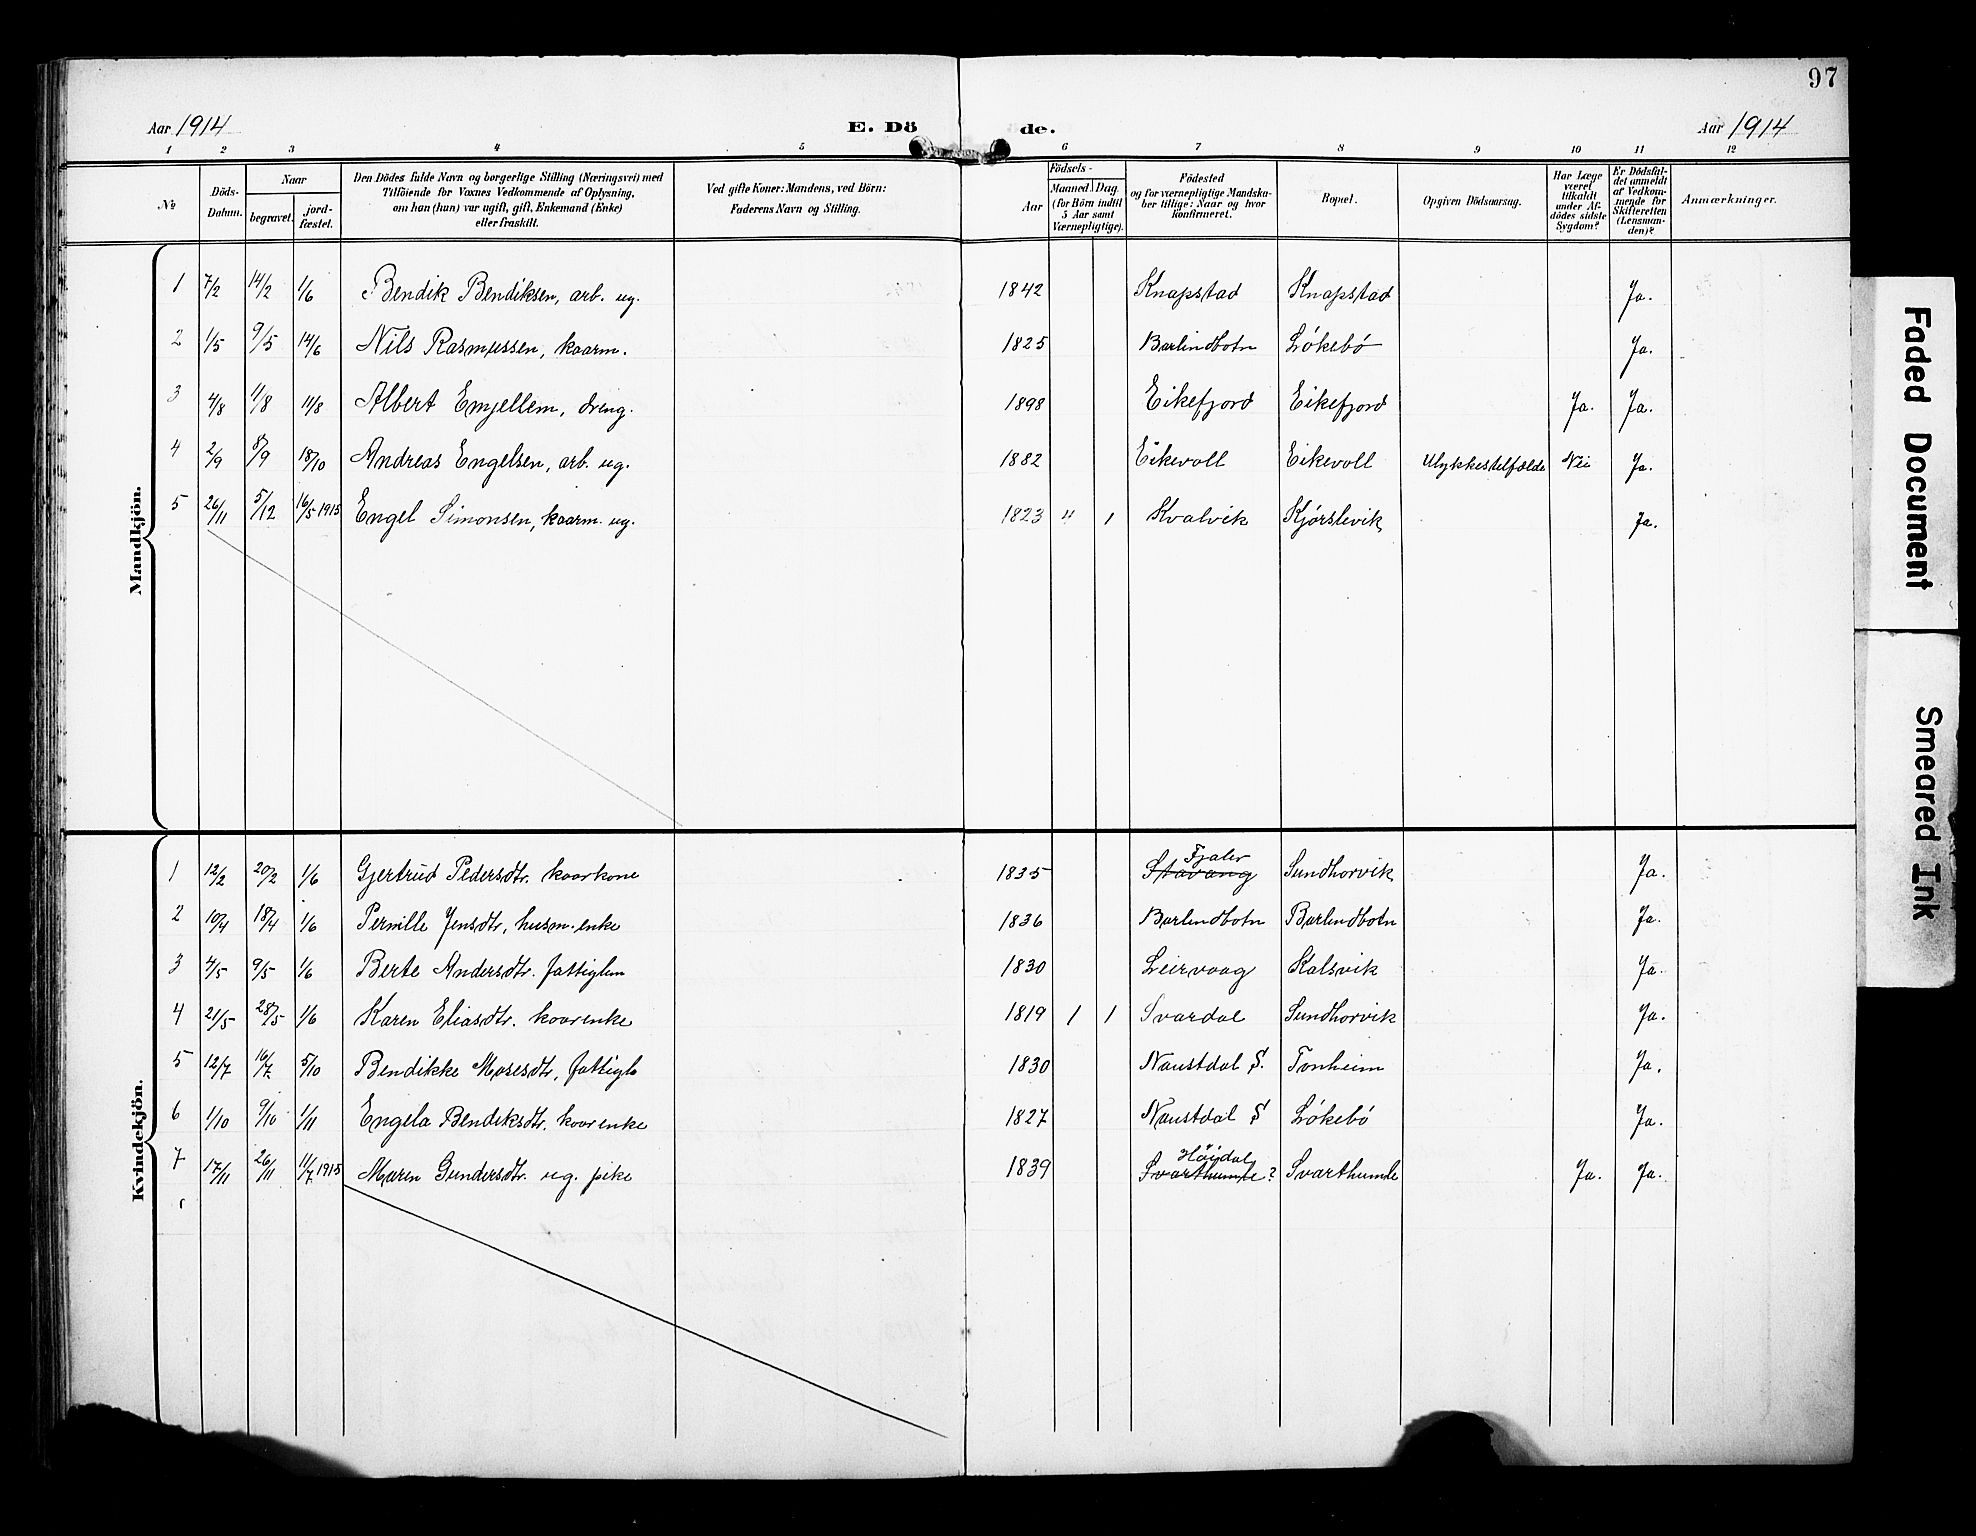 97
Aar 1914 E. Dö de. Aar 1914
1 2 3 4 5 6 7 8 9 10 11 12
No
Döds-Datum.
Naar
begravet. jord-fæstet.
Den Dödes fulde Navn og borgerlige Stilling (Næringsvei) med
Tilföiende for Voxnes Vedkommende af Oplysning,
om han (hun) var ugift, gift, Enkemand (Enke)
eller fraskilt.
Ved gifte Koner: Mandens, ved Börn:
Faderens Navn og Stilling.
Födsels-
Aar
Maaned Dag
(for Börn indtil
5 Aar samt
Værnepligtige).
Födested
og for værnepligtige Mandska-
ber tillige: Naar og hvor
konfirmeret.
Bopæl.
Opgiven Dödsaarsag.
Har Læge
været
tilkaldt
under Af-
dödes sidste
Sygdom?
Er Dödsfal-
det anmeldt
af Vedkom-
mende for
Skifteretten
(Lensman-
den)?
Anmærkninger.
Mandkjön.
1 7/2 14/2 1/6 Bendik Bendiksen, arb. ug. 1842 Knapstad Knapstad Ja.
2 1/5 9/5 14/6 Nils Rasmussen, kaarm. 1825 Barlindbotn Lökebö Ja.
3 4/8 11/8 11/8 Albert Emjellem, dreng. 1898 Eikefjord Eikefjord Ja. Ja.
4 2/9 8/9 18/10 Andreas Engelsen, arb. ug. 1882 Eikevoll Eikevoll Ulykkestilfælde Nei Ja.
5 26/11 5/12 16/5 1915 Engel Simonsen, kaarm. ug. 1823 4 1 Kvalvik Kjörslevik Ja.
Kvindekjön.
1 12/2 20/2 1/6 Gjertrud Pedersdtr. kaarkone 1835 Stavang Fjaler Sundhorvik Ja.
2 10/4 18/4 1/6 Pernille Jensdtr, husm. enke 1836 Barlindbotn Barlindbotn Ja.
3 4/5 9/5 1/6 Berte Andersdtr. fattiglem 1830 Leirvaag Kalsvik Ja.
4 21/5 28/5 1/6 Karen Eliasdtr. kaarenke 1819 1 1 Svardal Sundhorvik Ja.
5 12/7 16/7 5/10 Bendikke Mosesdtr, fattigl. 1830 Naustdal S. Tonheim Ja.
6 1/10 9/10 1/11 Engela Bendiksdtr. kaarenke 1827 Naustdal S Lökebö Ja.
7 17/11 26/11 11/7 1915 Maren Gundersdtr. ug. pike 1839 Svarthumle? Höydal Svarthumle Ja. Ja.
Faded Document
Smeared Ink